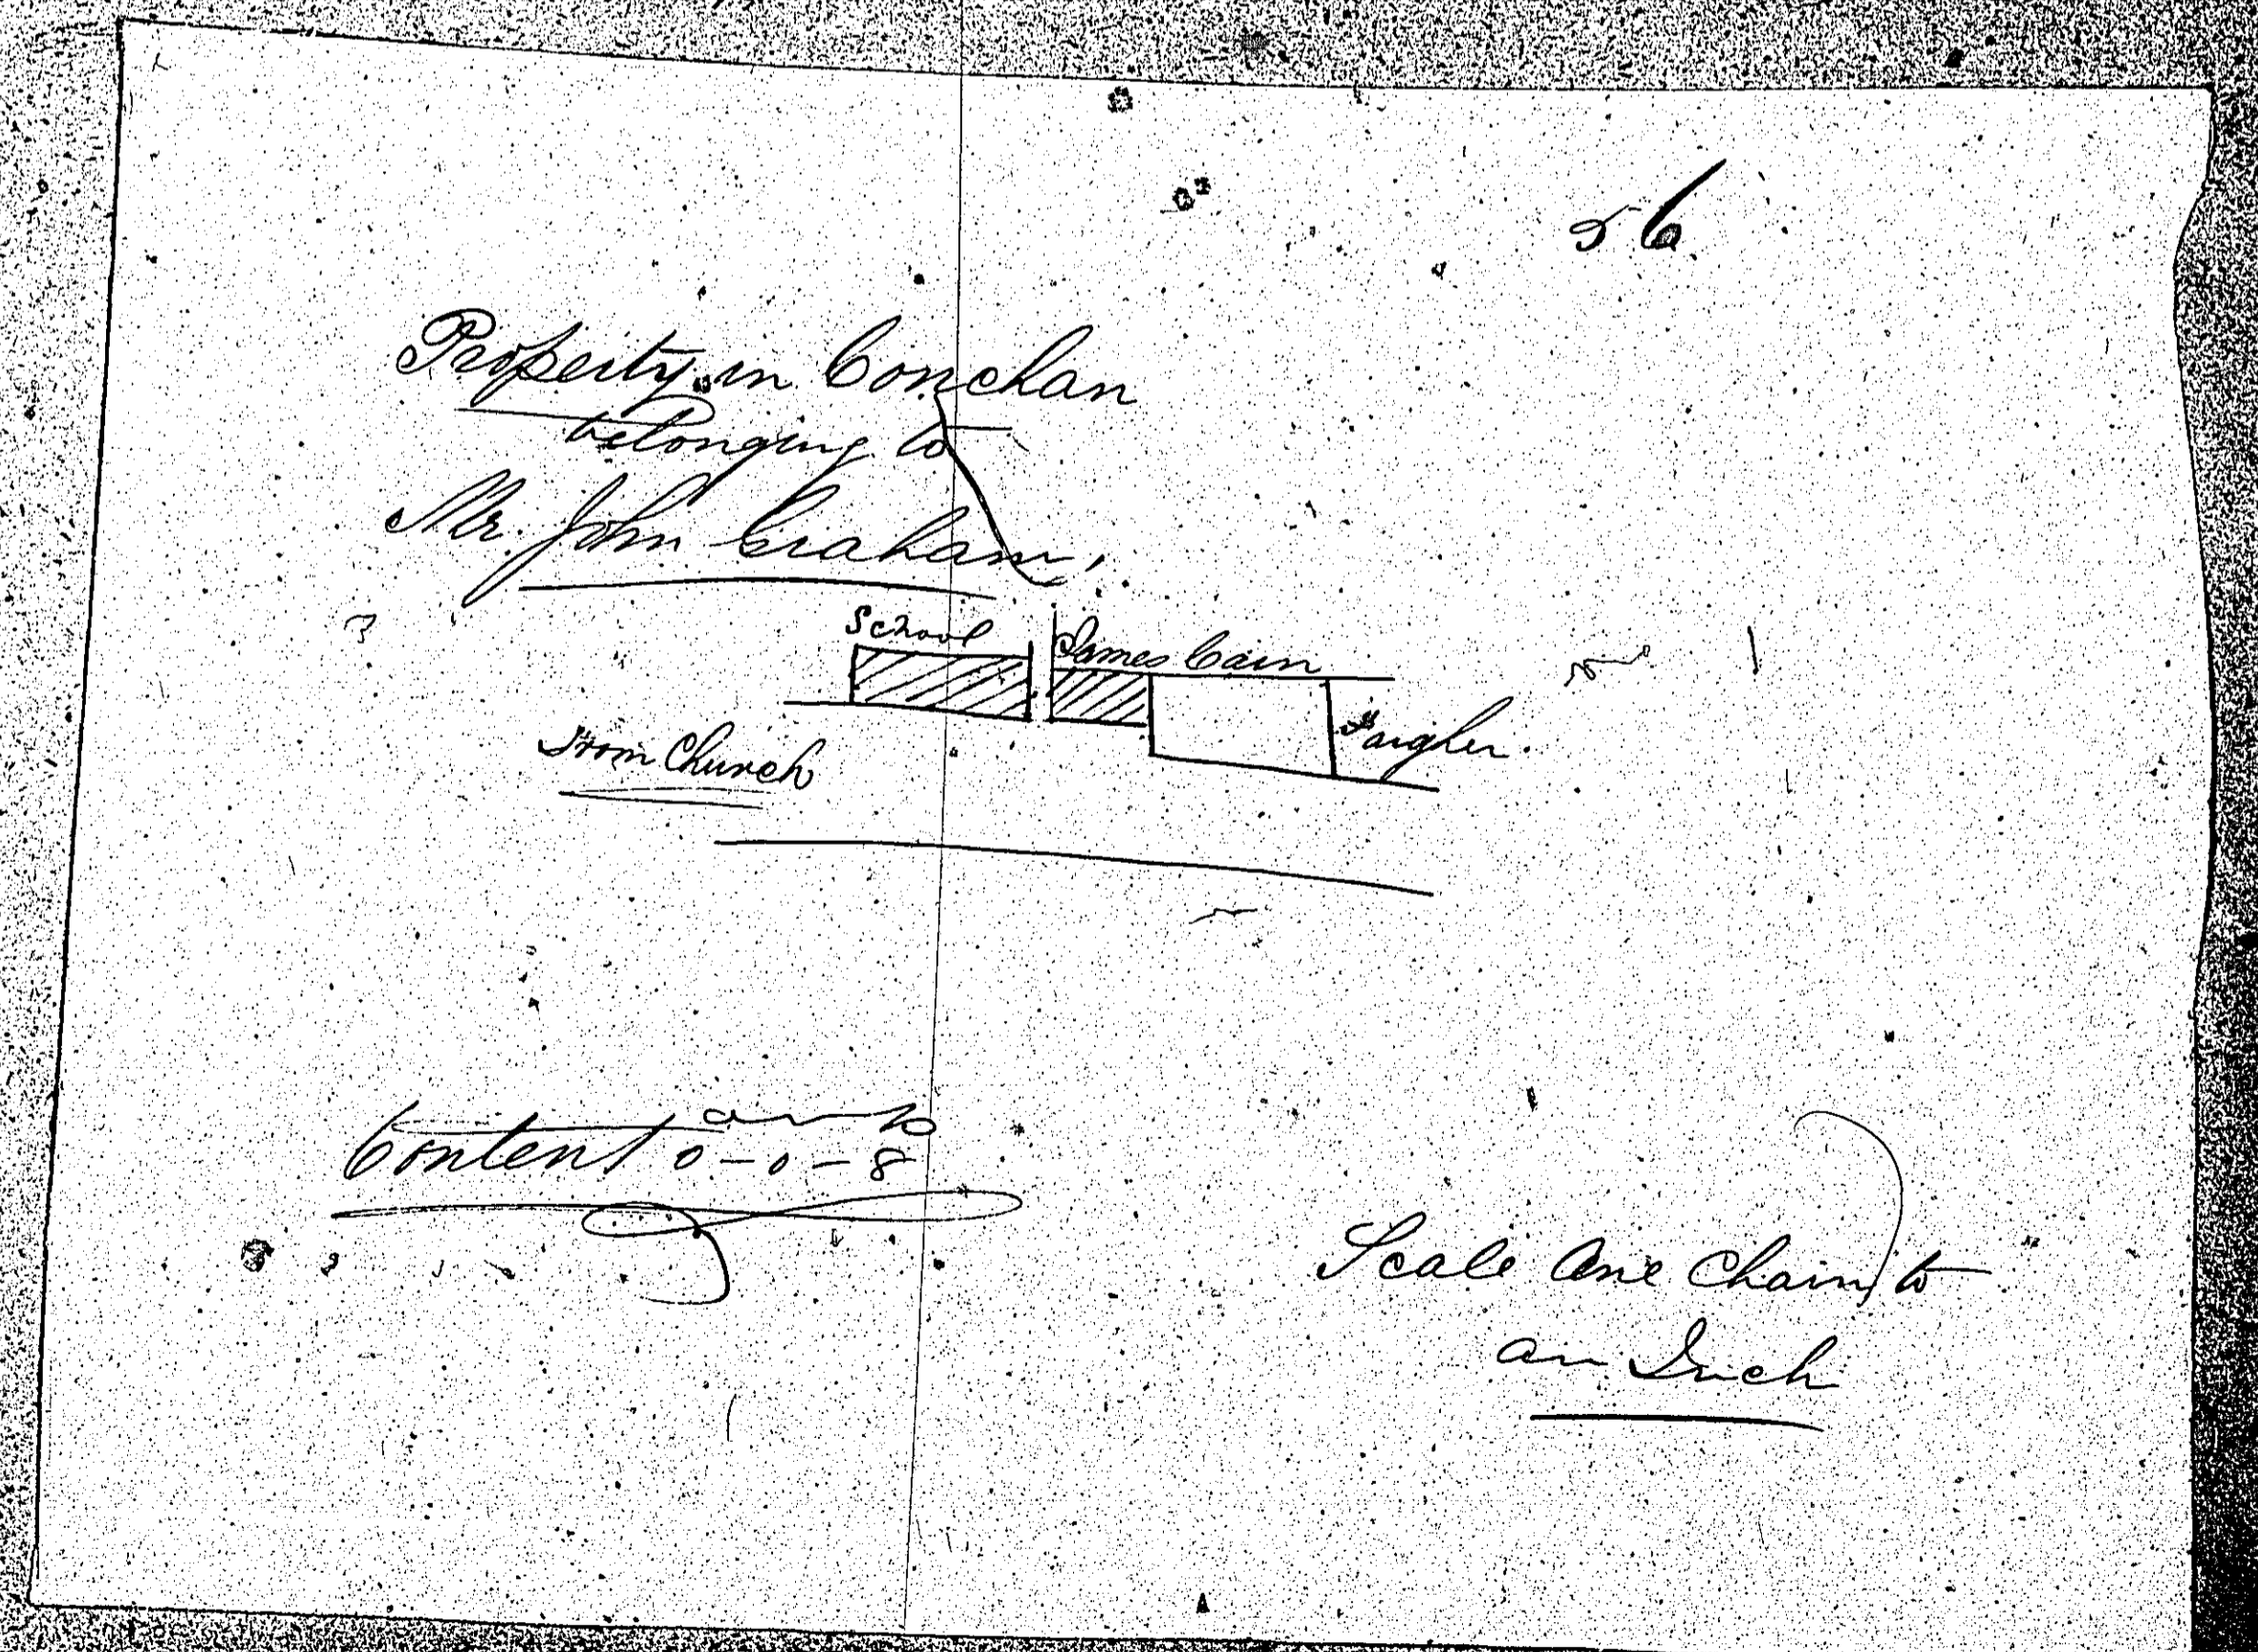 56
Property in Conchan
belonging to
Mr. John Graham
School
James Cain
Faigher.
From Church
a r p
Content 0-0-8
Scale One Chain to
an Inch